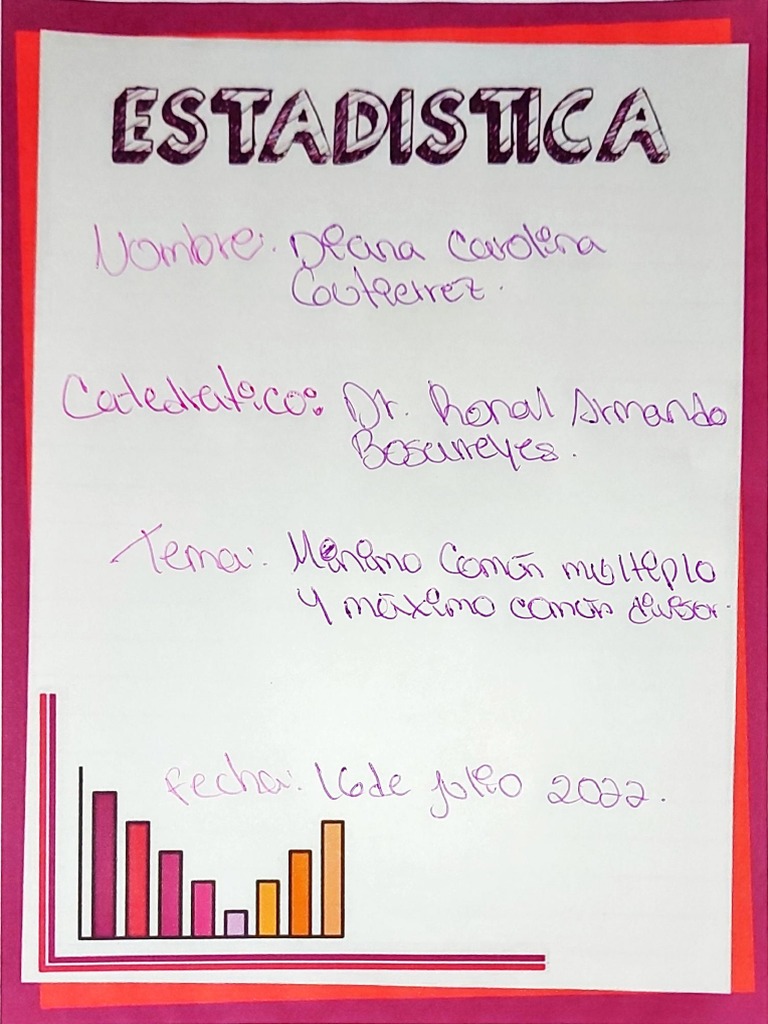 ESTADISTICA
Nombre: Diana Carolina
Goutierrez.
Catedratico: Dr. Ronal Armando
Bosarreyes.
Tema: Mínimo Común multiplo
y máximo común divisor.
Fecha: 16 de julio 2022.